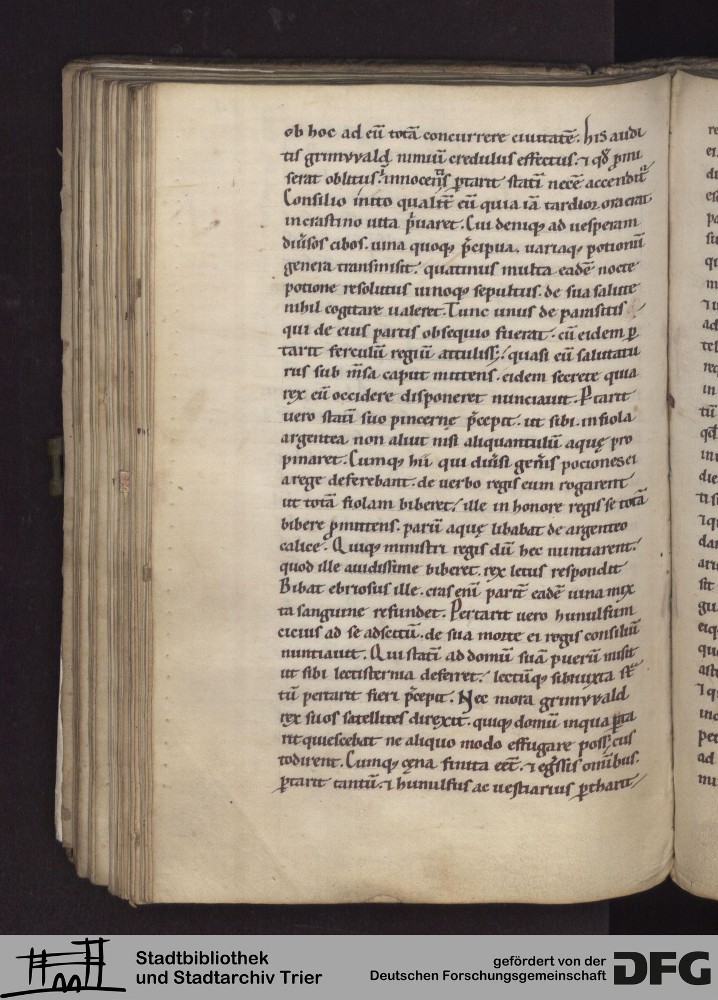 ob hoc ad eū totā concurrere ciuitatē. his audi
tis grimvvald nimiū credulus effectus. ⁊ qđ pmi
serat oblitus. innocentis ptarit statī necē accendit̄
Consilio inito qualit̄ eū quia iā tardior ora erat
in crastino uita p̄uaret. Cui deniqꝫ ad uesperam
diūsos cibos. uina quoqꝫ p̄cipua. uariaqꝫ potionū
genera transmisit. quatinus multa eadē nocte
potione resolutus uinoqꝫ sepultus. de sua salute
nihil cogitare ualeret. Tunc unus de parasitis
qui de eius patris obsequio fuerat. cū eidem p
tarit ferculū regiū attulissꝫ. quasi eū salutatu
rus sub m̄sa caput mittens. eidem secrete quia
rex eū occidere disponeret nunciauit. Ptarit
uero statī suo pincernę p̄cepit. ut sibi. in fiola
argentea non aliut nisi aliquantulū aquę pro
pinaret. Cumqꝫ hii qui diūsi gen̄is pociones ei
a rege deferebant. de uerbo regis eum rogarent
ut totā fiolam biberet. ille in honore regis se totā
bibere pmittens. parū aquę libabat de argenteo
calice. Quiqꝫ ministri regis dū hec nuntiarent.
quod ille auidissime biberet. rex letus respondit
Bibat ebriosus ille. cras enī parit̄ eadē uina mix
ta sanguine refundet. Pertarit uero hunulfum
cicius ad se adscitū. de sua morte ei regis consiliū
nuntiauit. Qui statī ad domū suā puerū misit
ut sibi lectisternia deferret. lectūqꝫ sibi iuxta st̄a
tū pertarit fieri p̄cepit. Nec mora grimvvald
rex suos satellites direxit. quiqꝫ domū in qua pta
rit quiescebat ne aliquo modo effugare possꝫ cus
todirent. Cumqꝫ cęna finita eēt. ⁊ eg̅ssis omībus.
ptarit tantū. ⁊ hunulfus ac uestiarius ptharit
Stadtbibliothek
und Stadtarchiv Trier
gefördert von der
Deutschen Forschungsgemeinschaft
DFG